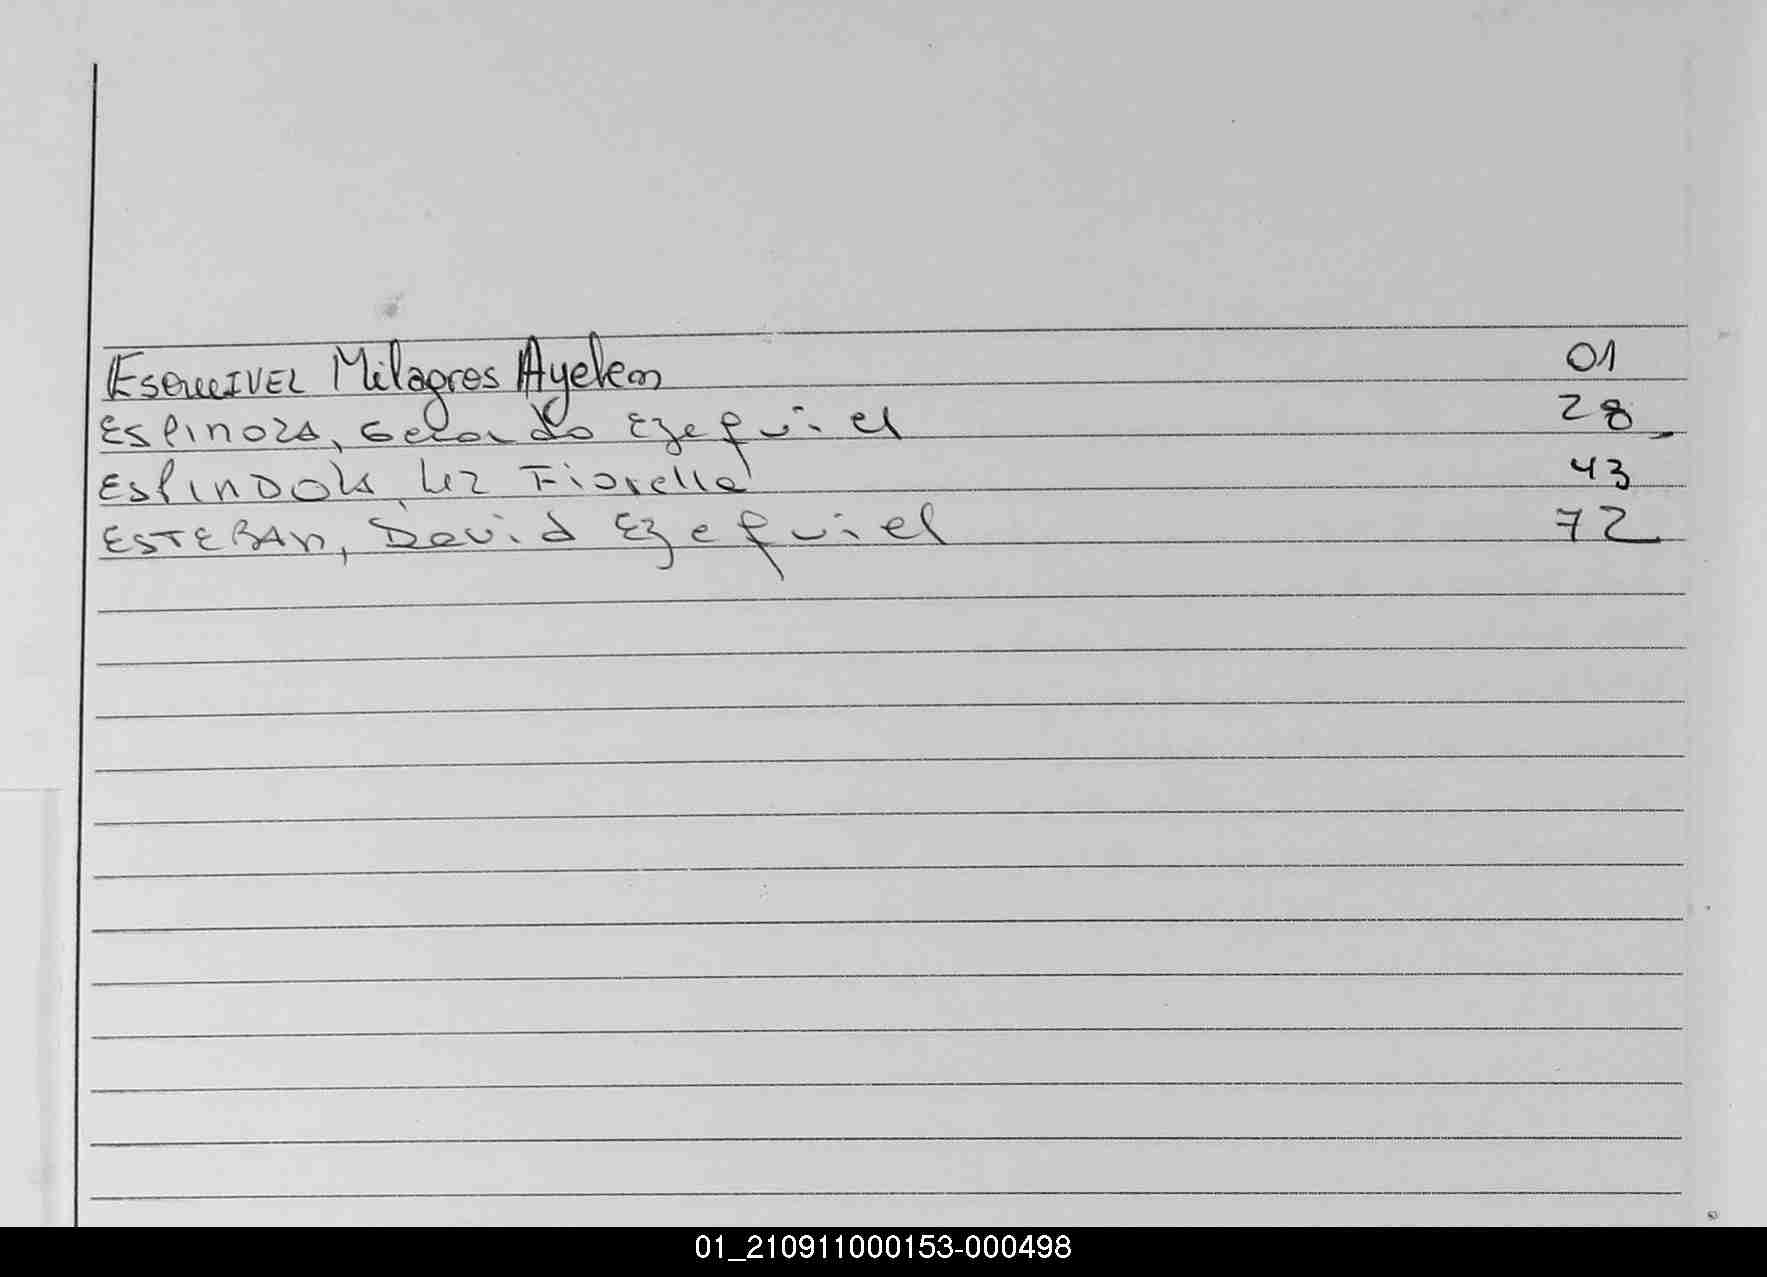 ESQUIVEL Milagros Ayelen 01
ESPINOZA, Gerardo Ezequiel 28
ESPINDOLA, Luz Fiorella 43
ESTEBAN, David Ezequiel 72
01_210911000153-000498